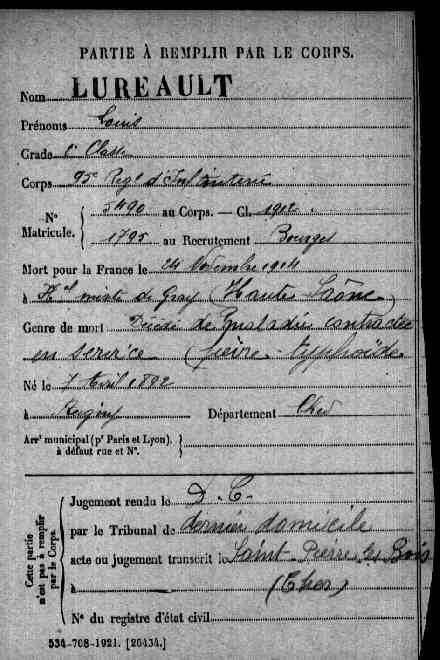 PARTIE À REMPLIR PAR LE CORPS.
Nom LUREAULT
Prénoms Louis
Grade 2e Classe
Corps 95e Regt d'Infanterie
N° Matricule. { 5490 au Corps. — Cl. 1912.
1795 au Recrutement Bourges
Mort pour la France le 24 Novembre 1914
à Hal mixte de Gray (Haute Saône)
Genre de mort Décédé de maladie contractée
en service (fièvre typhoïde
Né le 7 Avril 1892
à Département Cher
Arrt municipal (pr Paris et Lyon), à défaut rue et N°. }
Cette partie n'est pas à remplir par le Corps.
Jugement rendu le D. C.
par le Tribunal de dernier domicile
acte ou jugement transcrit le Saint-Pierre les Bois
à (Cher)
N° du registre d'état civil
534-708-1921. [26434.]